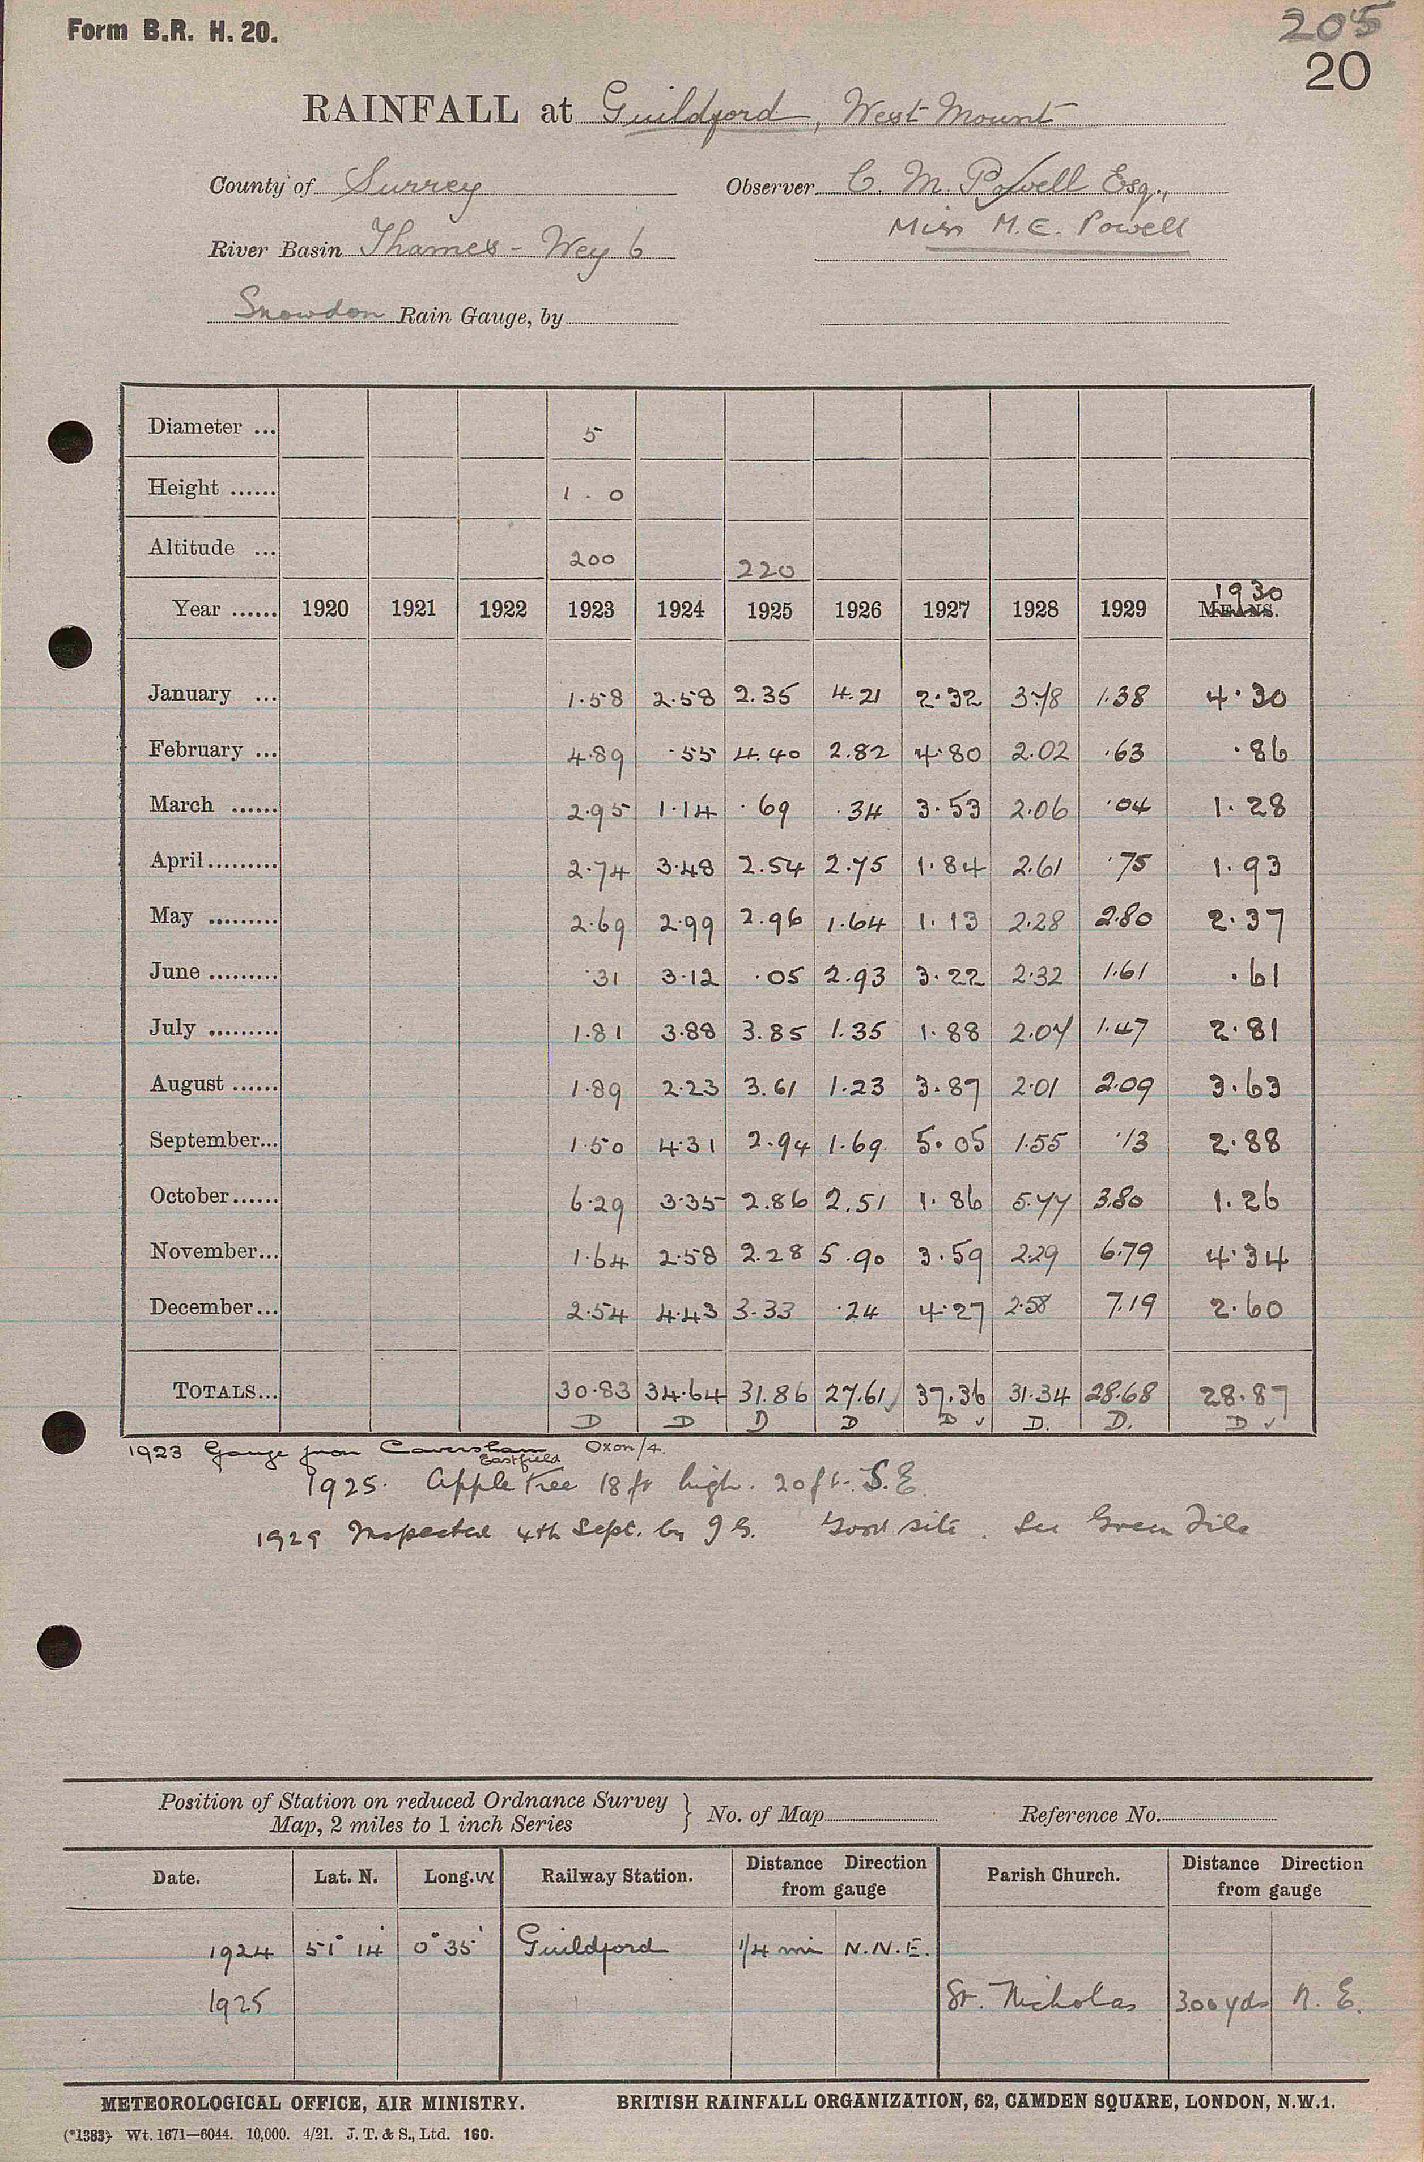 Form B.R. H. 20.
205
20
RAINFALL at Guildford, West Mount
County of Surrey Observer C. M. Powell Esq.,
Miss M. E. Powell
River Basin Thames - Wey 6
Snowdon Rain Gauge, by
Diameter ... 5
Height ...... 1 . 0
Altitude ... 200 220
Year ...... 1920 1921 1922 1923 1924 1925 1926 1927 1928 1929 MEANS. 1930
January ... 1.58 2.58 2.35 4.21 2.32 3.78 1.38 4.30
February ... 4.89 .55 4.40 2.82 4.80 2.02 .63 .86
March ...... 2.95 1.14 .69 .34 3.53 2.06 .04 1.28
April......... 2.74 3.48 2.54 2.75 1.84 2.61 .75 1.93
May ......... 2.69 2.99 2.96 1.64 1.13 2.28 2.80 2.37
June ......... .31 3.12 .05 2.93 3.22 2.32 1.61 .61
July ......... 1.81 3.88 3.85 1.35 1.88 2.07 1.47 2.81
August ...... 1.89 2.23 3.61 1.23 3.87 2.01 2.09 3.63
September... 1.50 4.31 2.94 1.69 5.05 1.55 .13 2.88
October...... 6.29 3.35 2.86 2.51 1.86 5.77 3.80 1.26
November... 1.64 2.58 2.28 5.90 3.59 2.29 6.79 4.34
December... 2.54 4.43 3.33 .24 4.27 2.58 7.19 2.60
TOTALS... 30.83 34.64 31.86 27.61 37.36 31.34 28.68 28.87
D D D D D √ D. D. D √
1923 Gauge from Caversham Oxon/4.
Eastfield
1925. Apple tree 18 ft high. 20 ft. S.E.
1929 Inspected 4th Sept. by J G. Good site. See Green File
Position of Station on reduced Ordnance Survey
Map, 2 miles to 1 inch Series } No. of Map Reference No.
Date. Lat. N. Long. W Railway Station. Distance Direction from gauge Parish Church. Distance Direction from gauge
1924 51° 14' 0° 35' Guildford 1/4 mi N.N.E.
1925 St. Nicholas 300 yds N. E.
METEOROLOGICAL OFFICE, AIR MINISTRY. BRITISH RAINFALL ORGANIZATION, 62, CAMDEN SQUARE, LONDON, N.W.1.
(*1383) Wt. 1671—6044. 10,000. 4/21. J. T. & S., Ltd. 160.